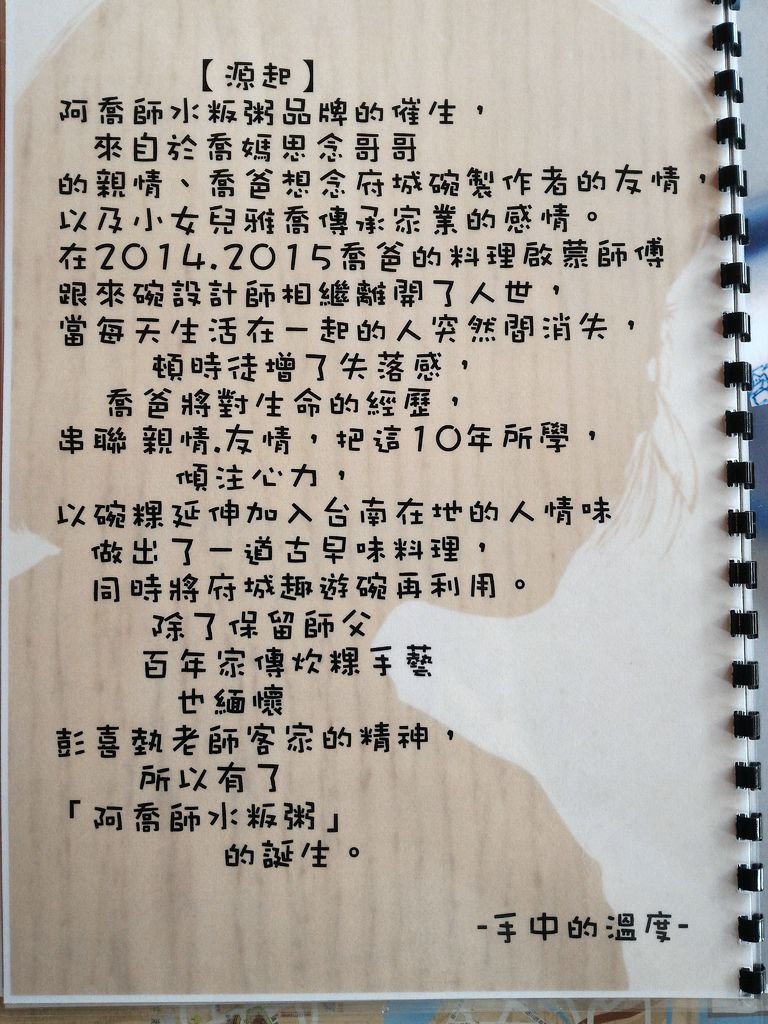 【源起】
阿喬師水粄粥品牌的催生，
來自於喬媽思念哥哥
的親情、喬爸想念府城碗製作者的友情，
以及小女兒雅喬傳承家業的感情。
在2014.2015喬爸的料理啟蒙師傅
跟來碗設計師相繼離開了人世，
當每天生活在一起的人突然間消失，
頓時徒增了失落感，
喬爸將對生命的經歷，
串聯 親情.友情，把這10年所學，
傾注心力，
以碗粿延伸加入台南在地的人情味
做出了一道古早味料理，
同時將府城趣遊碗再利用。
除了保留師父
百年家傳炊粿手藝
也緬懷
彭喜執老師客家的精神，
所以有了
「阿喬師水粄粥」
的誕生。
-手中的溫度-